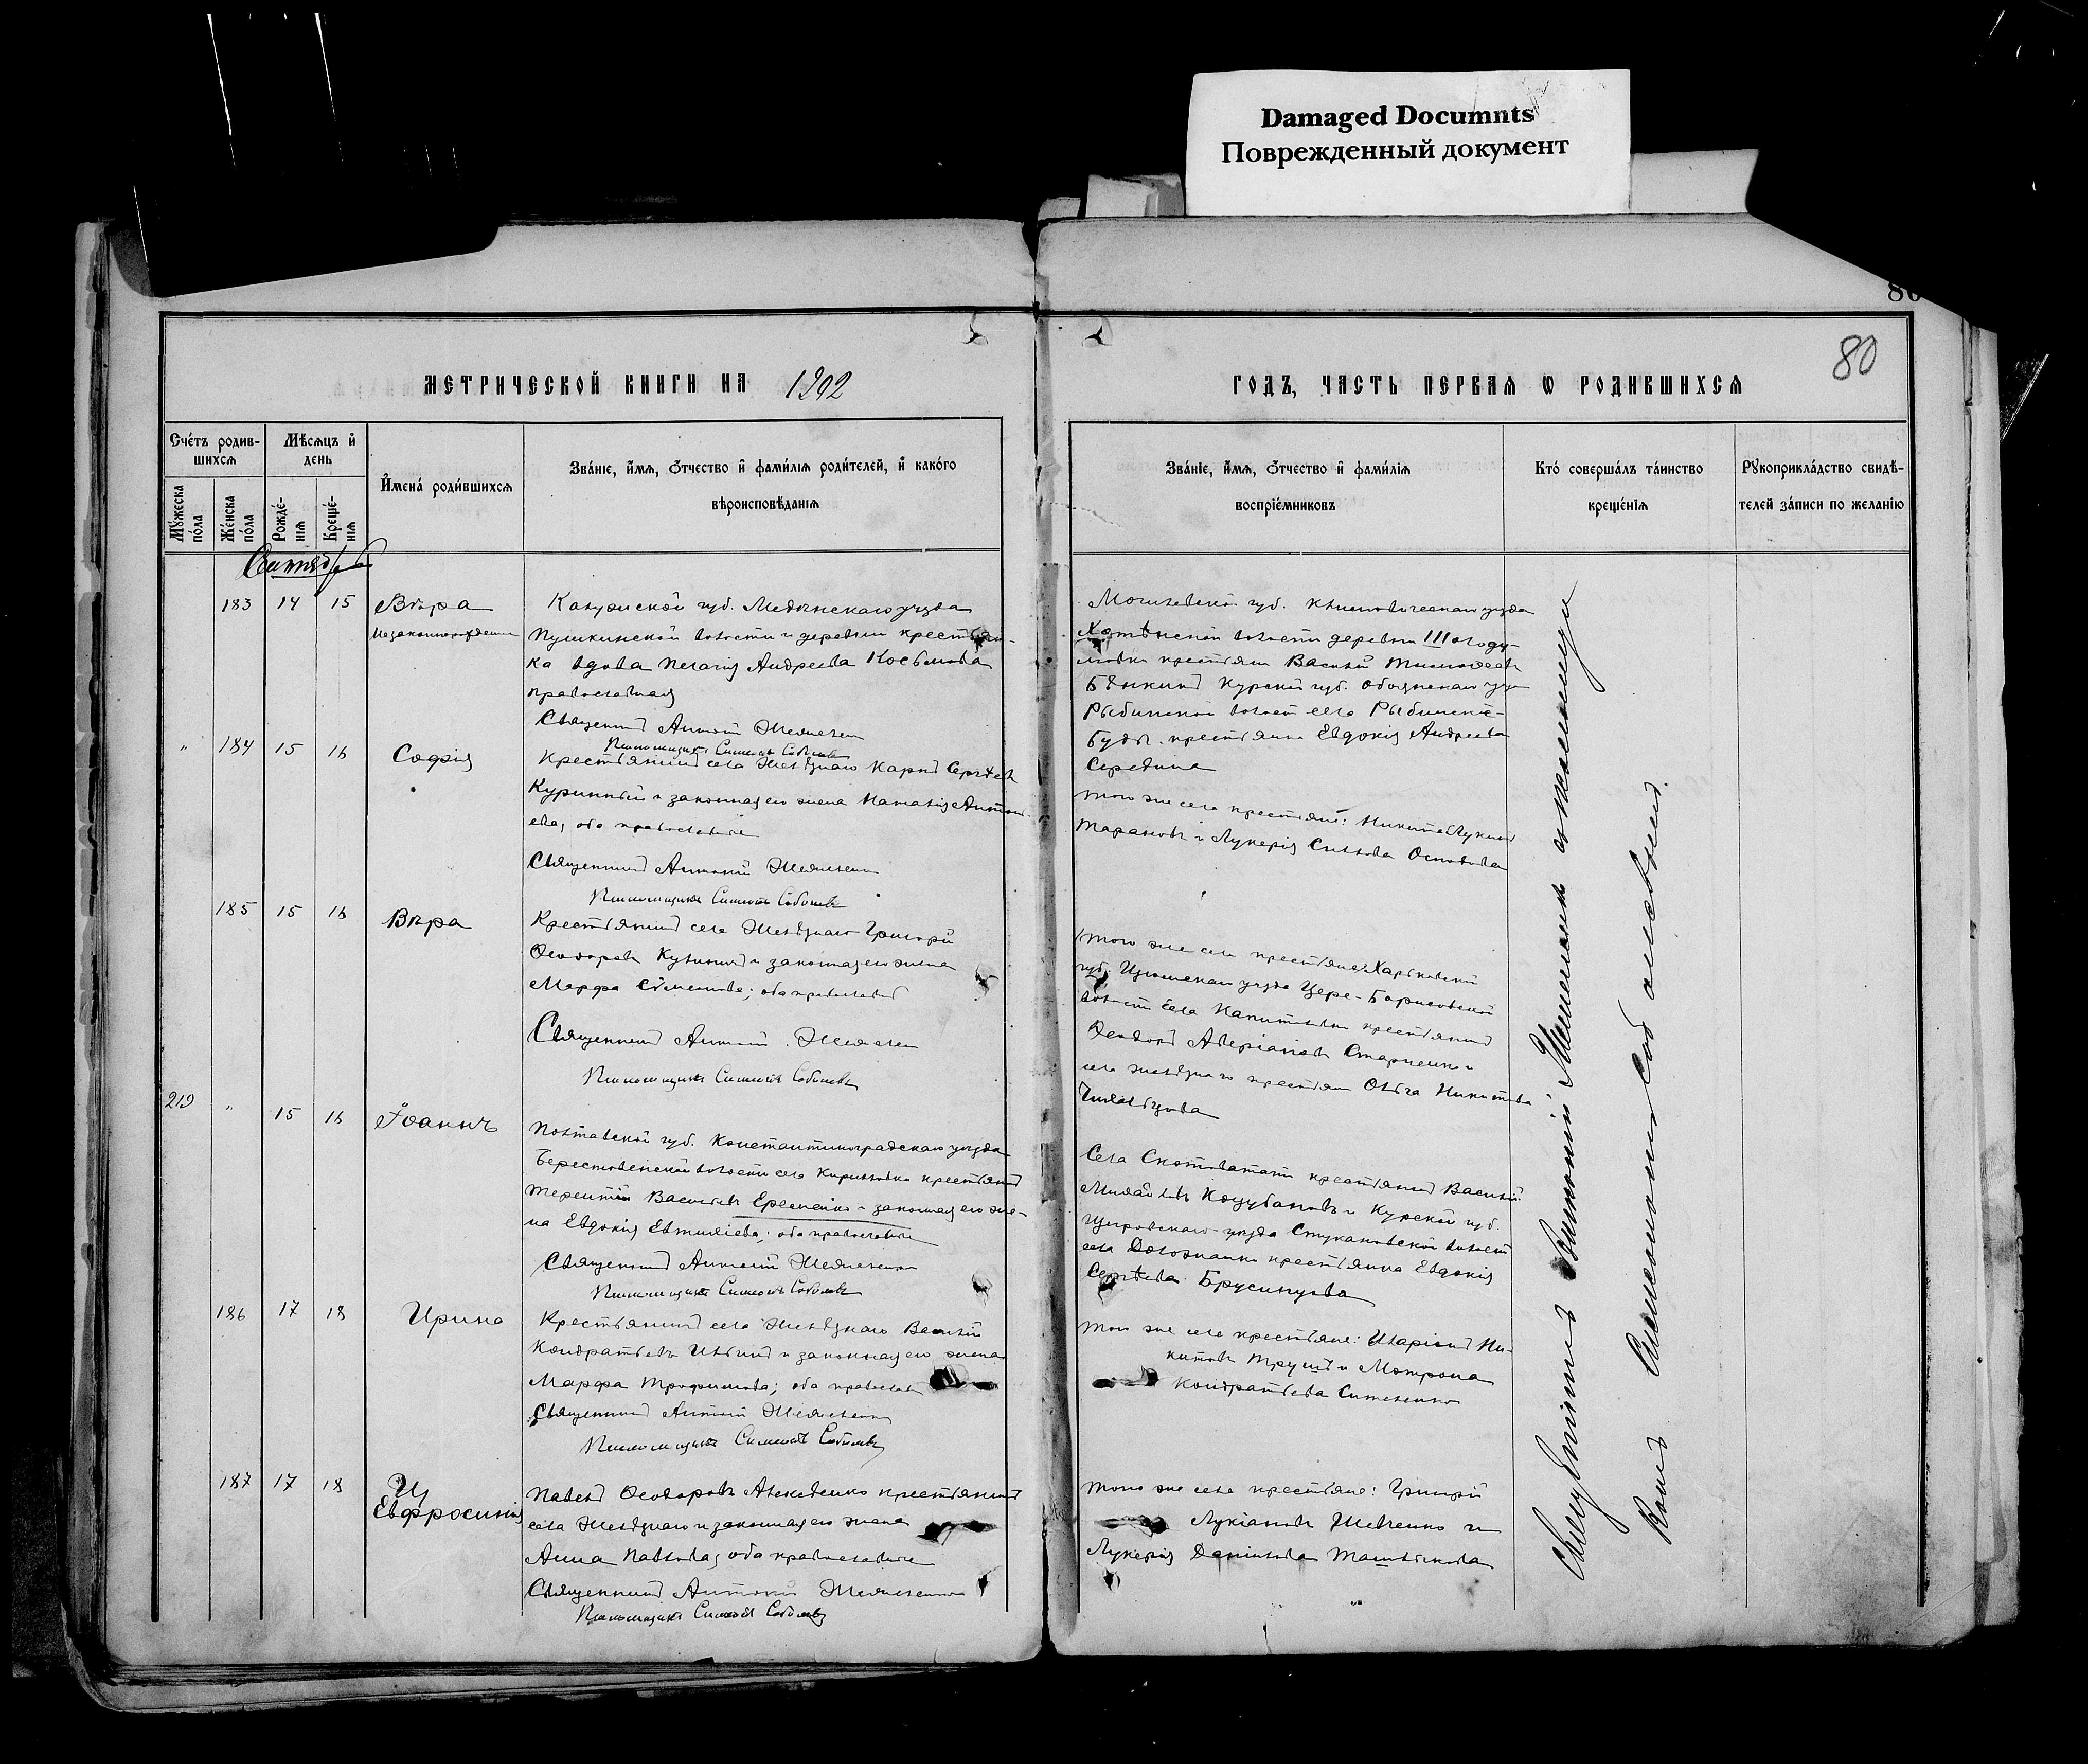 Damaged Documnts
Поврежденный документ
80
80
МЕТРИЧЕСКОЙ КНИГИ НА 1902
ГОДЪ, ЧАСТЬ ПЕРВАЯ Ѡ РОДИВШИХСЯ
Счетъ родив-
шихся
Мужеска пола
Женска пола
Мѣсяцъ и
день
Рожде-
нія
Креще-
нія
Имена родившихся
Званіе, имя, отчество и фамилія родителей, и какого
вѣроисповѣданія
Званіе, имя, отчество и фамилія
воспріемниковъ
Кто совершалъ таинство
крещенія
Рукоприкладство свидѣ-
телей записи по желанію
Сентябрь
183 14 15 Вѣра
Незаконнорожденная
Калужской губ. Медынскаго уѣзда
Пушкинской волости и деревни крестьян-
ка вдова Пелагія Андреева Косьмова
православная
Священникъ Антоній
Псаломщикъ Симеонъ Соболевъ
Могилевской губ. Климовичскаго уѣзда
волости деревни
крестьян Василій Тимофеевъ
Курской губ. Обоянскаго
Рыбинской волости села Рыбинскіе-
Буды крестьянка Евдокія Андреева
Середина
" 184 15 16 Софія
Крестьянинъ села Желѣзнаго Карпъ Сергѣевъ
Куринный и законная его жена Наталія Антонь-
ева, оба православные
Священникъ Антоній
Псаломщикъ Симеонъ Соболевъ
того же села крестьяне: Никита Лукинъ
Тарановъ и Лукерія
185 15 16 Вѣра
Крестьянинъ села Желѣзнаго Григорій
Ѳеодоровъ и законная его жена
Марфа Симеонова; оба православные
Священникъ Антоній
Псаломщикъ Симеонъ Соболевъ
того же села крестьяне Харьковской
губ. Изюмскаго уѣзда Царе-Борисовской
волости села крестьянинъ
Ѳеодоръ Аверіановъ Старченко и
села Желѣзнаго крестьян Ольга Никитова
219 " 15 16 Іоаннъ
Полтавской губ. Константиноградскаго уѣзда
Берестовенской волости села Кирилловки крестьянинъ
Терентій Васильевъ Еременко и законная его же-
на Евдокія Евтихіева; оба православные
Священникъ Антоній
Псаломщикъ Симеонъ Соболевъ
Села Скотоватаго крестьянинъ Василій
Михайловъ Коцубановъ и Курской губ.
Щигровскаго уѣзда волости
села крестьянка Евдокія
Сергѣева Брусинцова
186 17 18 Ирина
Крестьянинъ села Желѣзнаго Василій
Кондратьевъ Ильинъ и законная его жена
Марфа Трофимова; оба православ
Священникъ Антоній
Псаломщикъ Симеонъ Соболевъ
того же села крестьяне: Иларіонъ Ни-
китовъ Трушъ и Мотрона
Кондратьева
187 17 18
Евфросинія
Павелъ Ѳеодоровъ Алексѣенко крестьянинъ
села Желѣзнаго и законная его жена
Анна Павлова, оба православные
Священникъ Антоній
Псаломщикъ Симеонъ Соболевъ
того же села крестьяне: Григорій
Лукіановъ Шевченко и
Лукерія Даніилова
Священникъ Антоній съ псаломщи-
комъ Симеономъ Соболевымъ.